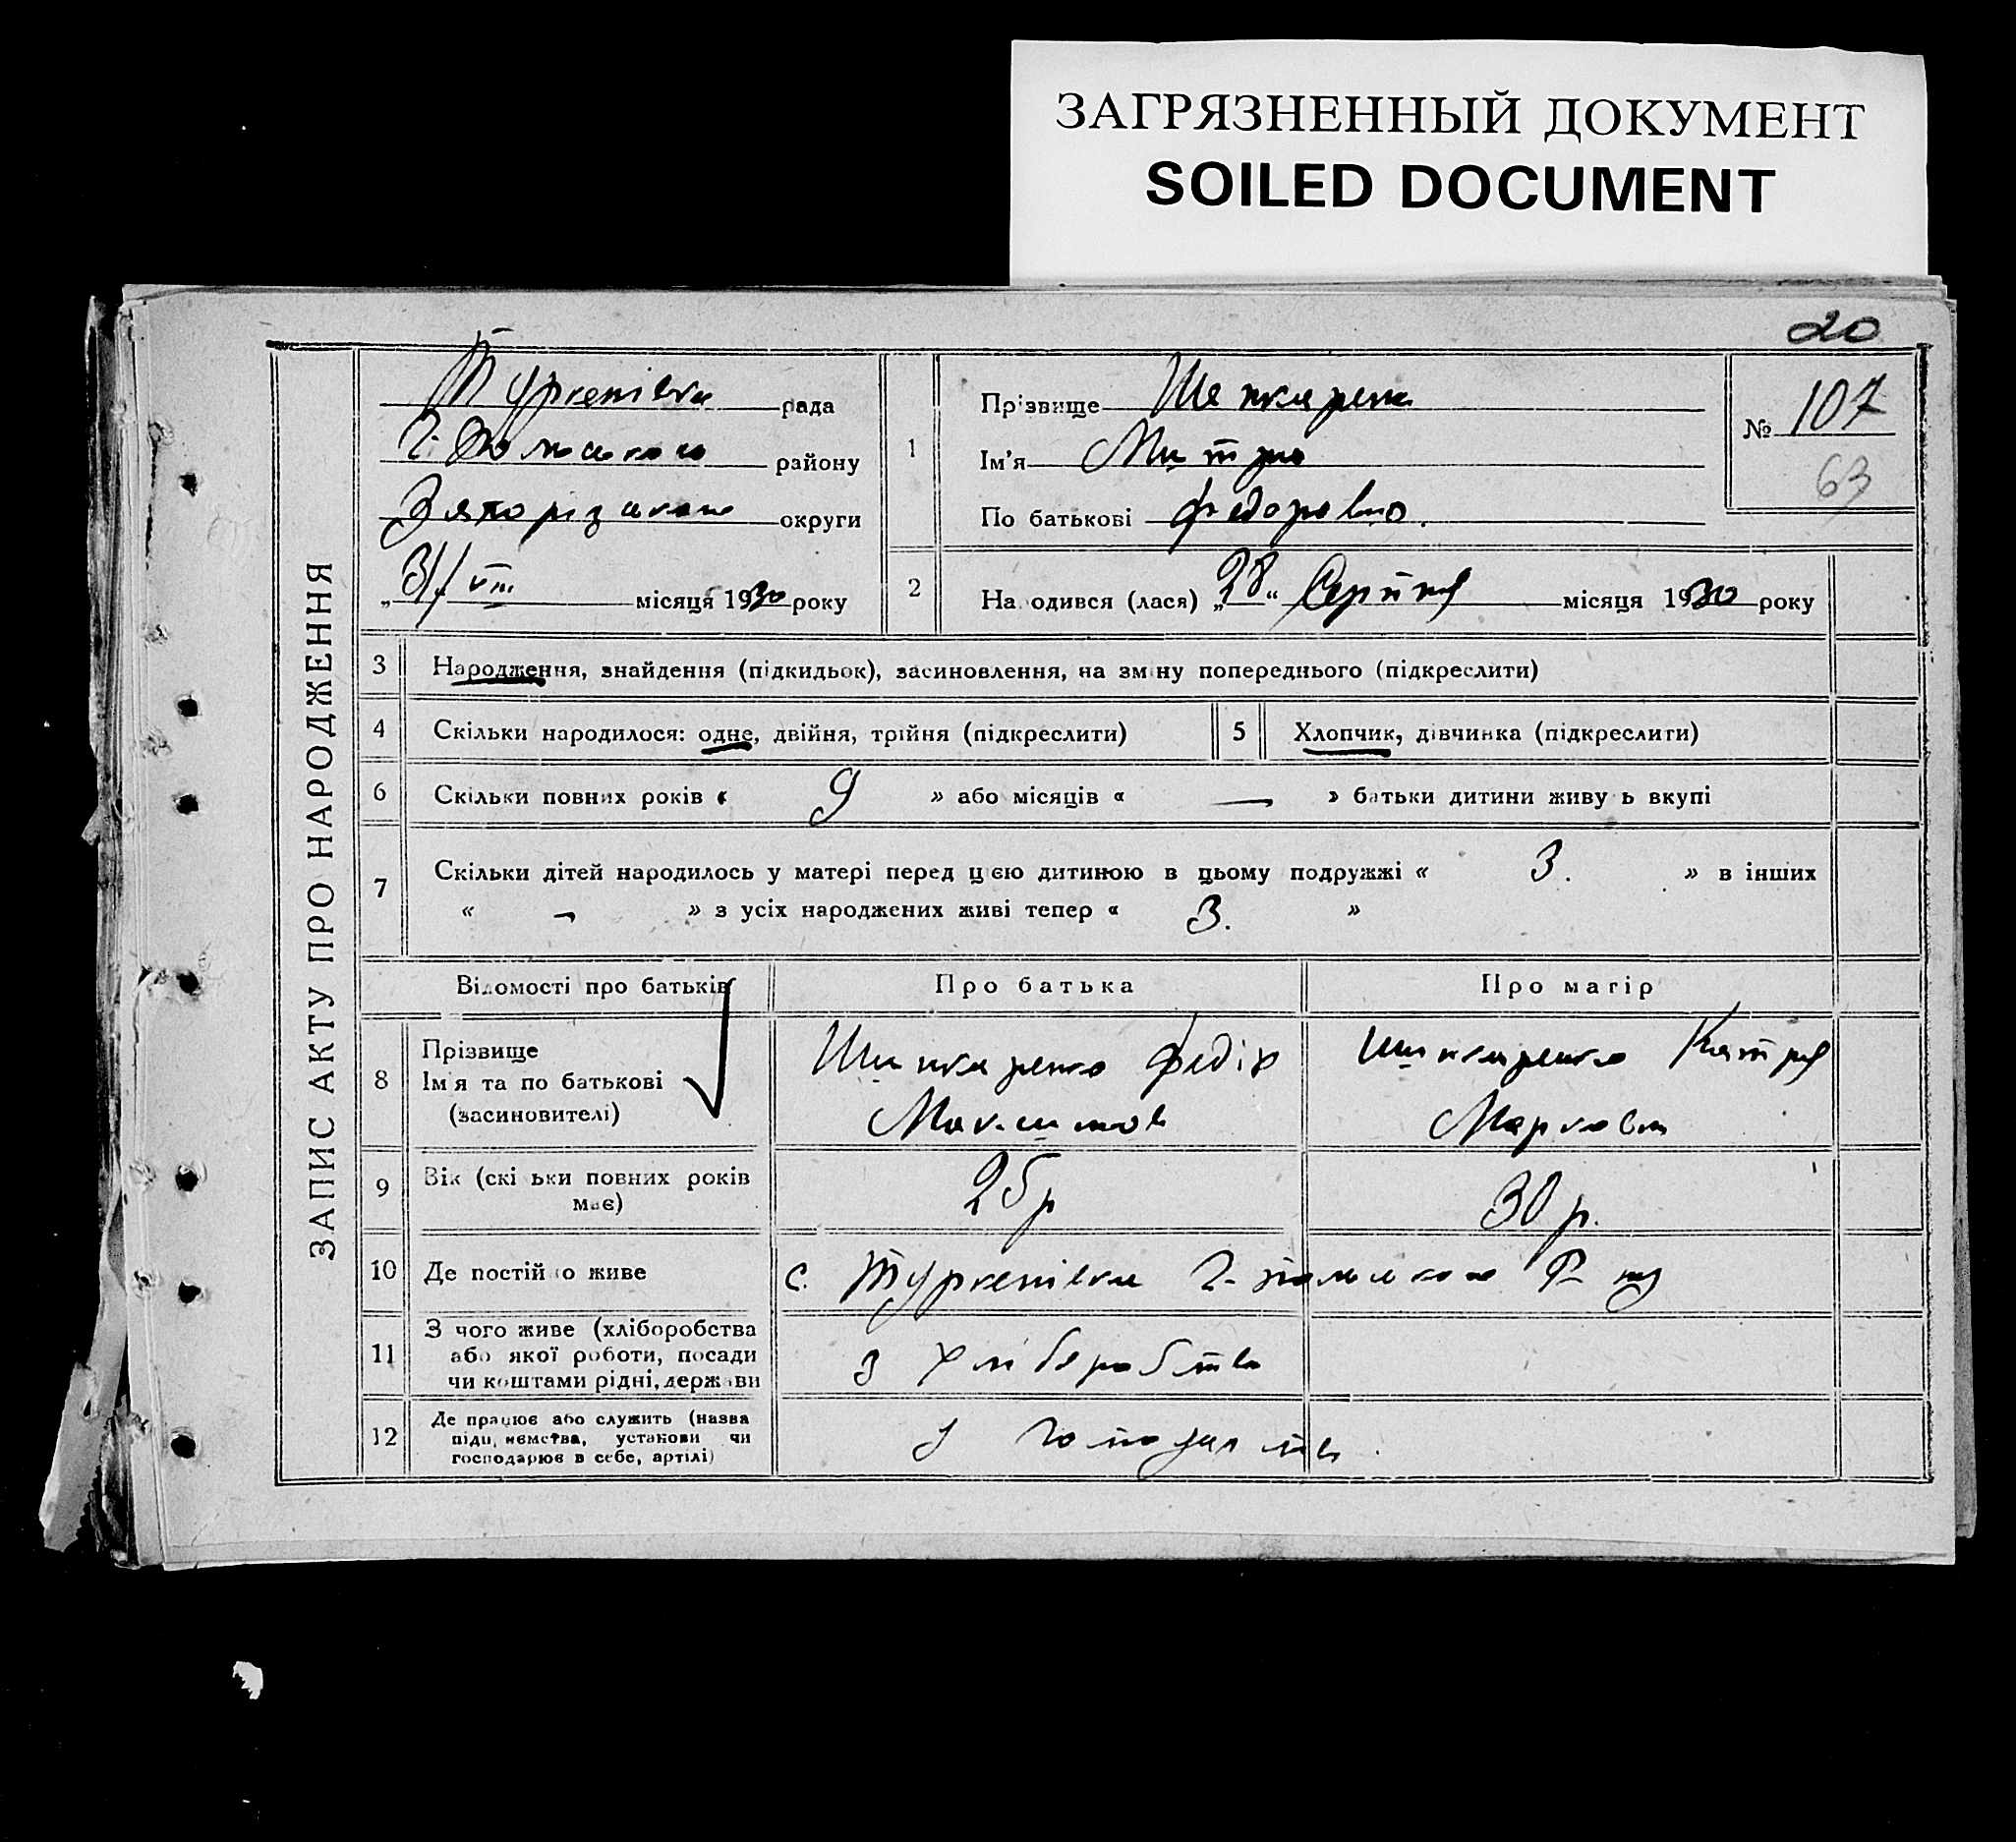 ЗАГРЯЗНЕННЫЙ ДОКУМЕНТ
SOILED DOCUMENT
20
ЗАПИС АКТУ ПРО НАРОДЖЕННЯ
Туркенівка рада
району
Запорізького округи
„31“ VIII місяця 1930 року
1
Прізвище
Ім'я Митро
По батькові Федоровио.
№ 107
63
2 На одився (лася) „28“ Серпня місяця 1930 року
3 Народження, знайдення (підкидьок), засиновлення, на зміну попереднього (підкреслити)
4 Скільки народилося: одне, двійня, трійня (підкреслити) 5 Хлопчик, дівчинка (підкреслити)
6 Скільки повних років « 9 » або місяців « — » батьки дитини живу ь вкупі
7 Скільки дітей народилось у матері перед цією дитиною в цьому подружжі « 3. » в інших
« - » з усіх народжених живі тепер « 3. »
Відомості про батьків Про батька Про матір
8 Прізвище
Ім'я та по батькові
(засиновителі)
Шинкаренко Федір
Максимов
Шинкаренко Катря
Марковн
9 Вік (скі ьки повних років
має)
25 р
30 р.
10 Де постій о живе с. Туркенівка Р-ну
11 З чого живе (хліборобства
або якої роботи, посади
чи коштами рідні, держави
з хліборобства
12 Де працює або служить (назва
підприємства, установи чи
господарює в себе, артілі)